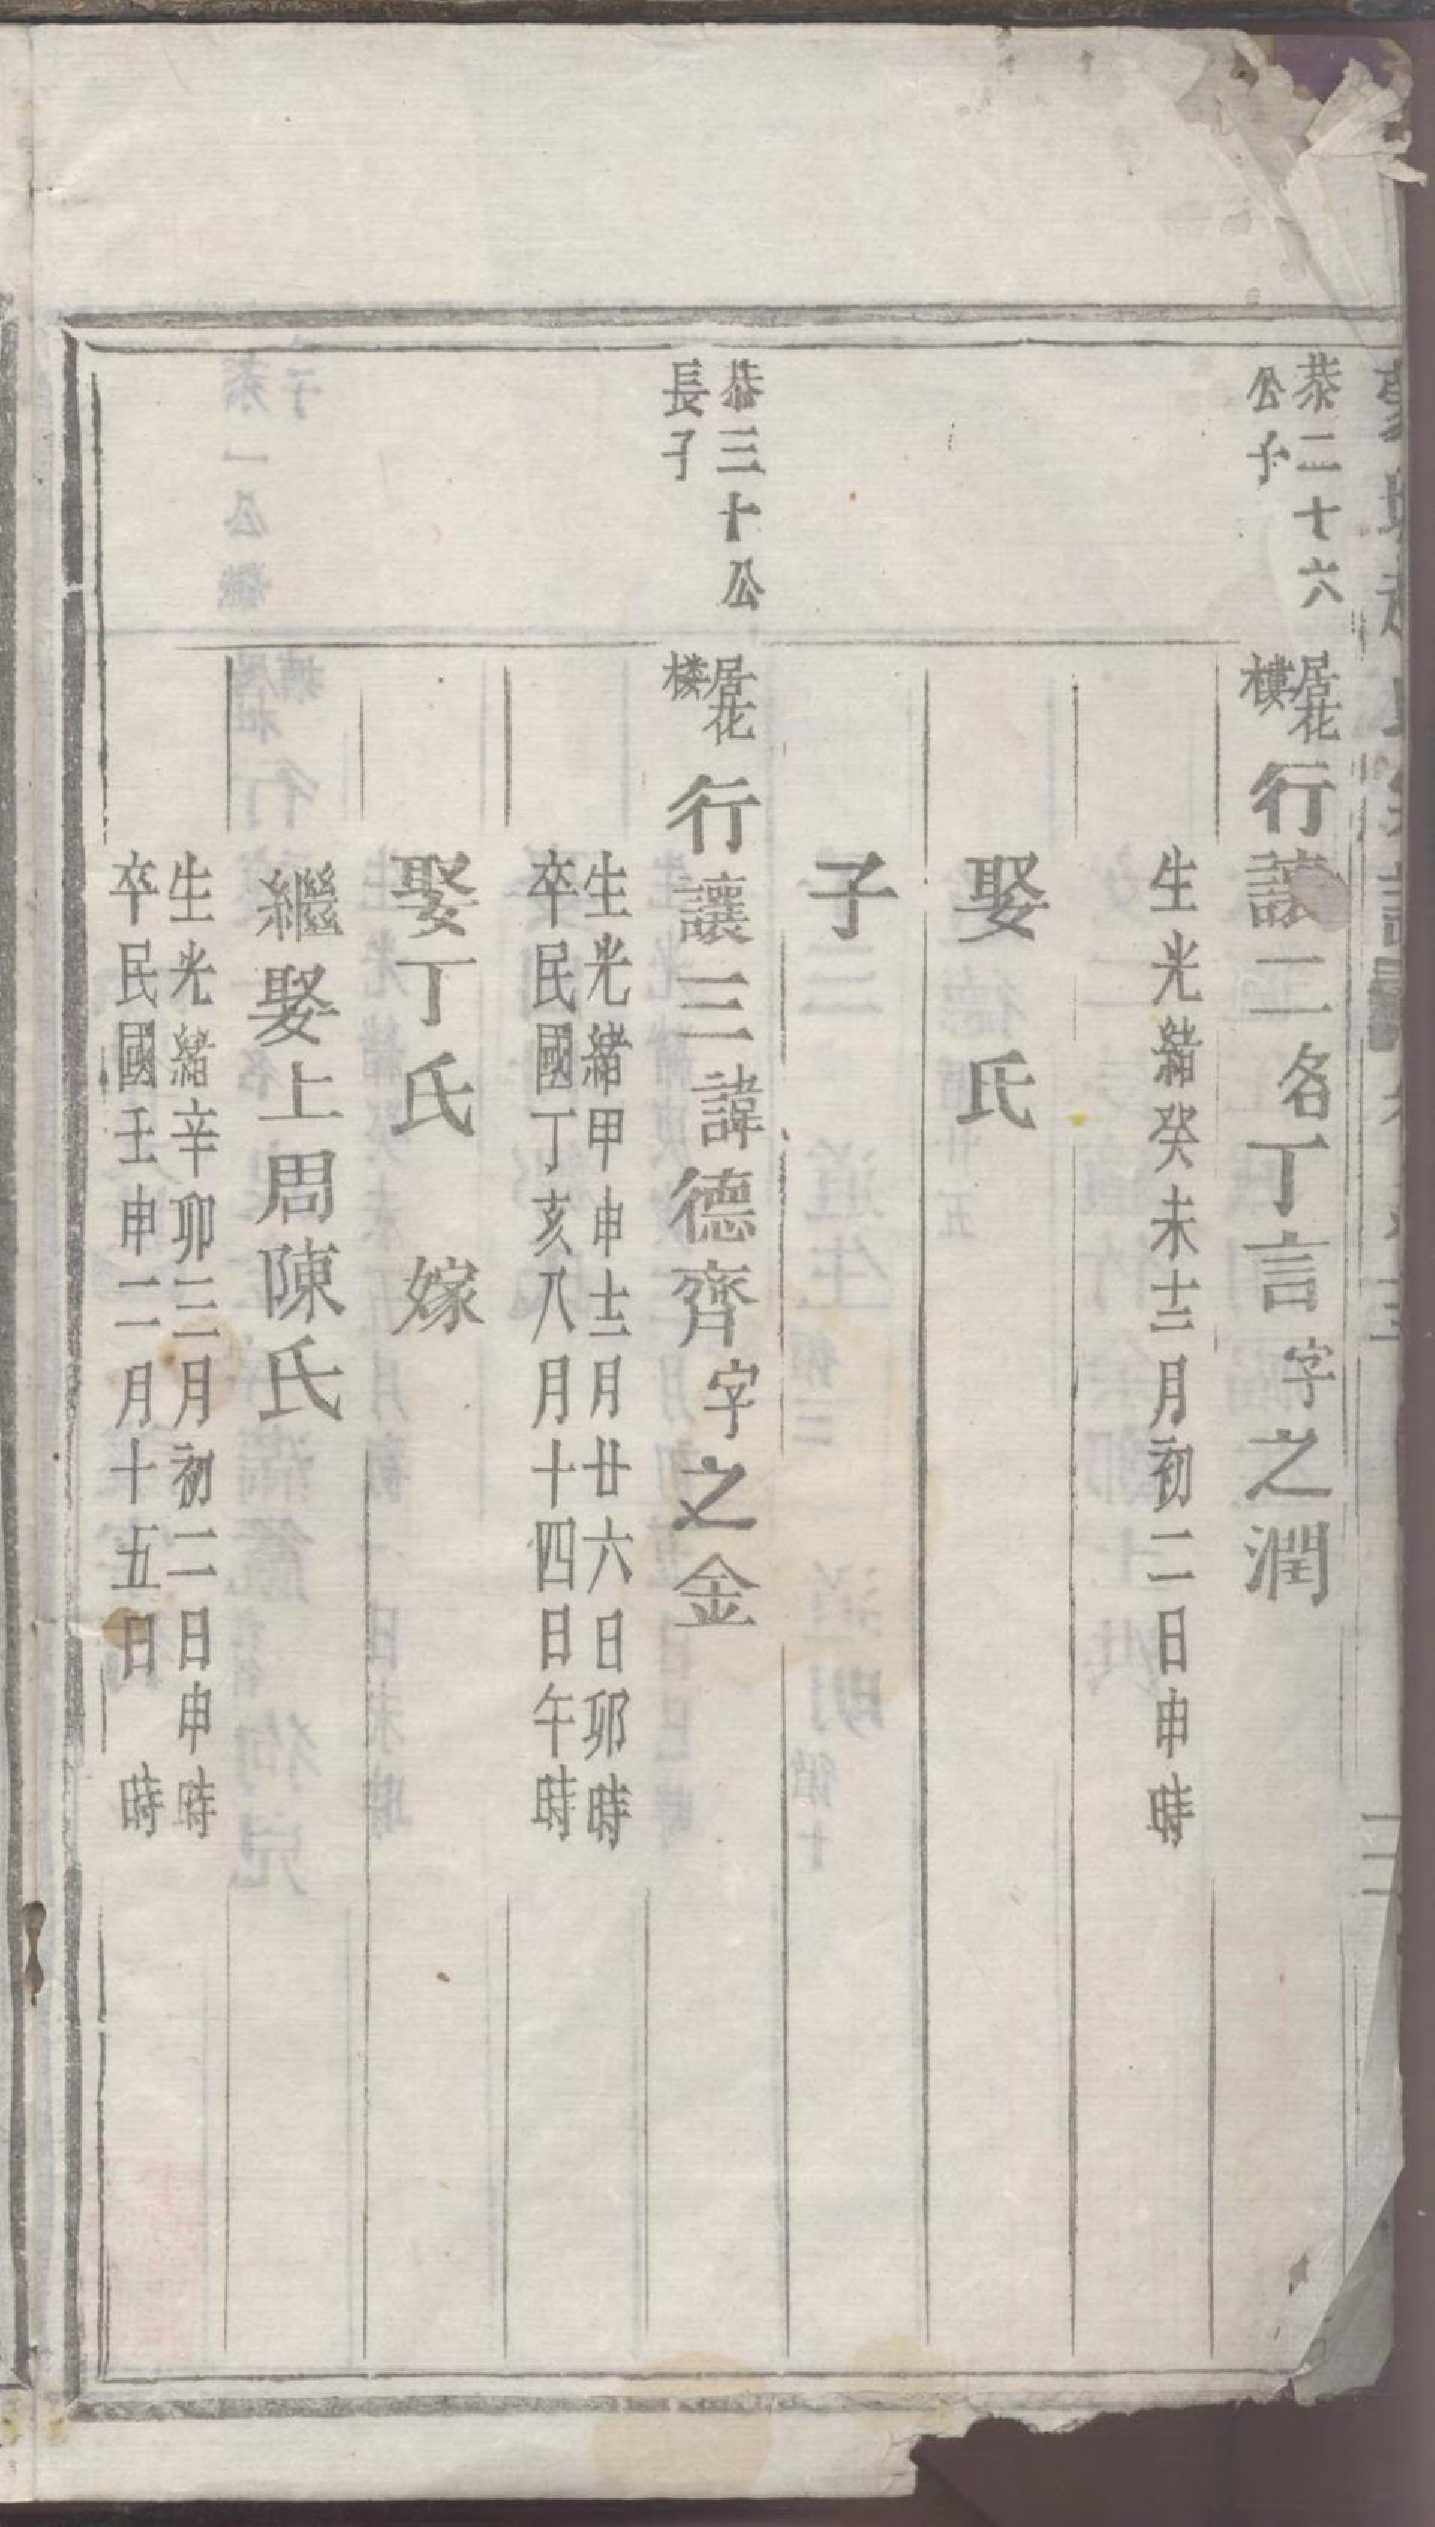 恭二十六
公子
居花
樓
行讓二名丁言字之潤
生光緒癸未十二月初二日申時
娶氏
子
恭三十公
長子
居花
楼
行讓三諱德齊字之金
生光緒甲申十二月廿六日卯時
卒民國丁亥八月十四日午時
娶丁氏 嫁
繼娶上周陳氏
生光緒辛卯三月初二日申時
卒民國壬申二月十五日 時